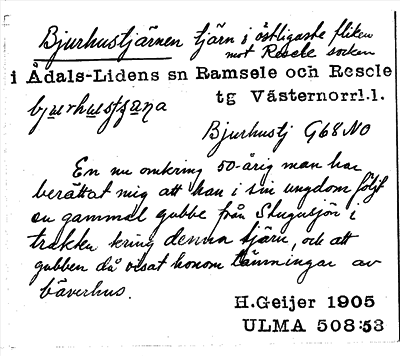 Bjurhustjärnen tjärn i östligaste fliken
mot Resele socken
i Ådals-Lidens sn Ramsele och Resele
tg Västernorrl.l.
Bjurhustj G68NO
En nu omkring 50-årig man har
berättat mig att han i sin ungdom följt
en gammal gubbe från Stugusjön i
trakten kring denna tjärn, och att
gubben då visat honom lämningar av
bäverhus.
H.Geijer 1905
ULMA 508:53